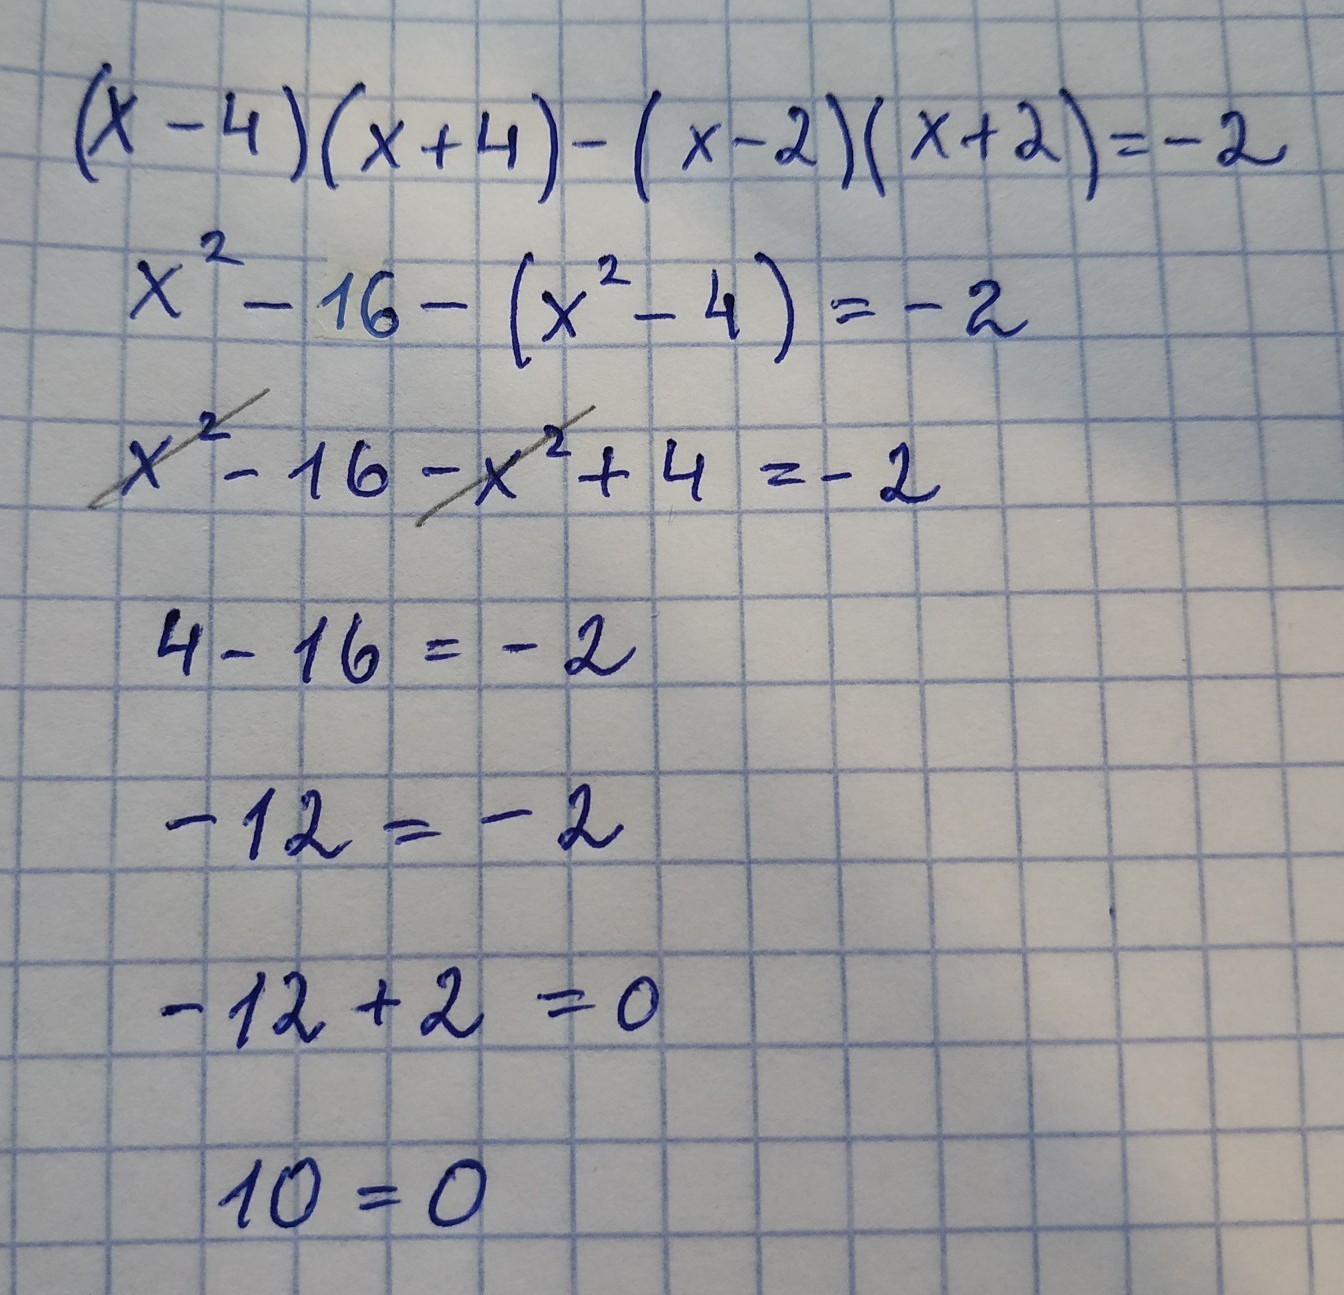 (x-4)(x+4)-(x-2)(x+2)=-2
x²-16-(x²-4)=-2
x²-16-x²+4=-2
4-16=-2
-12=-2
-12+2=0
10=0